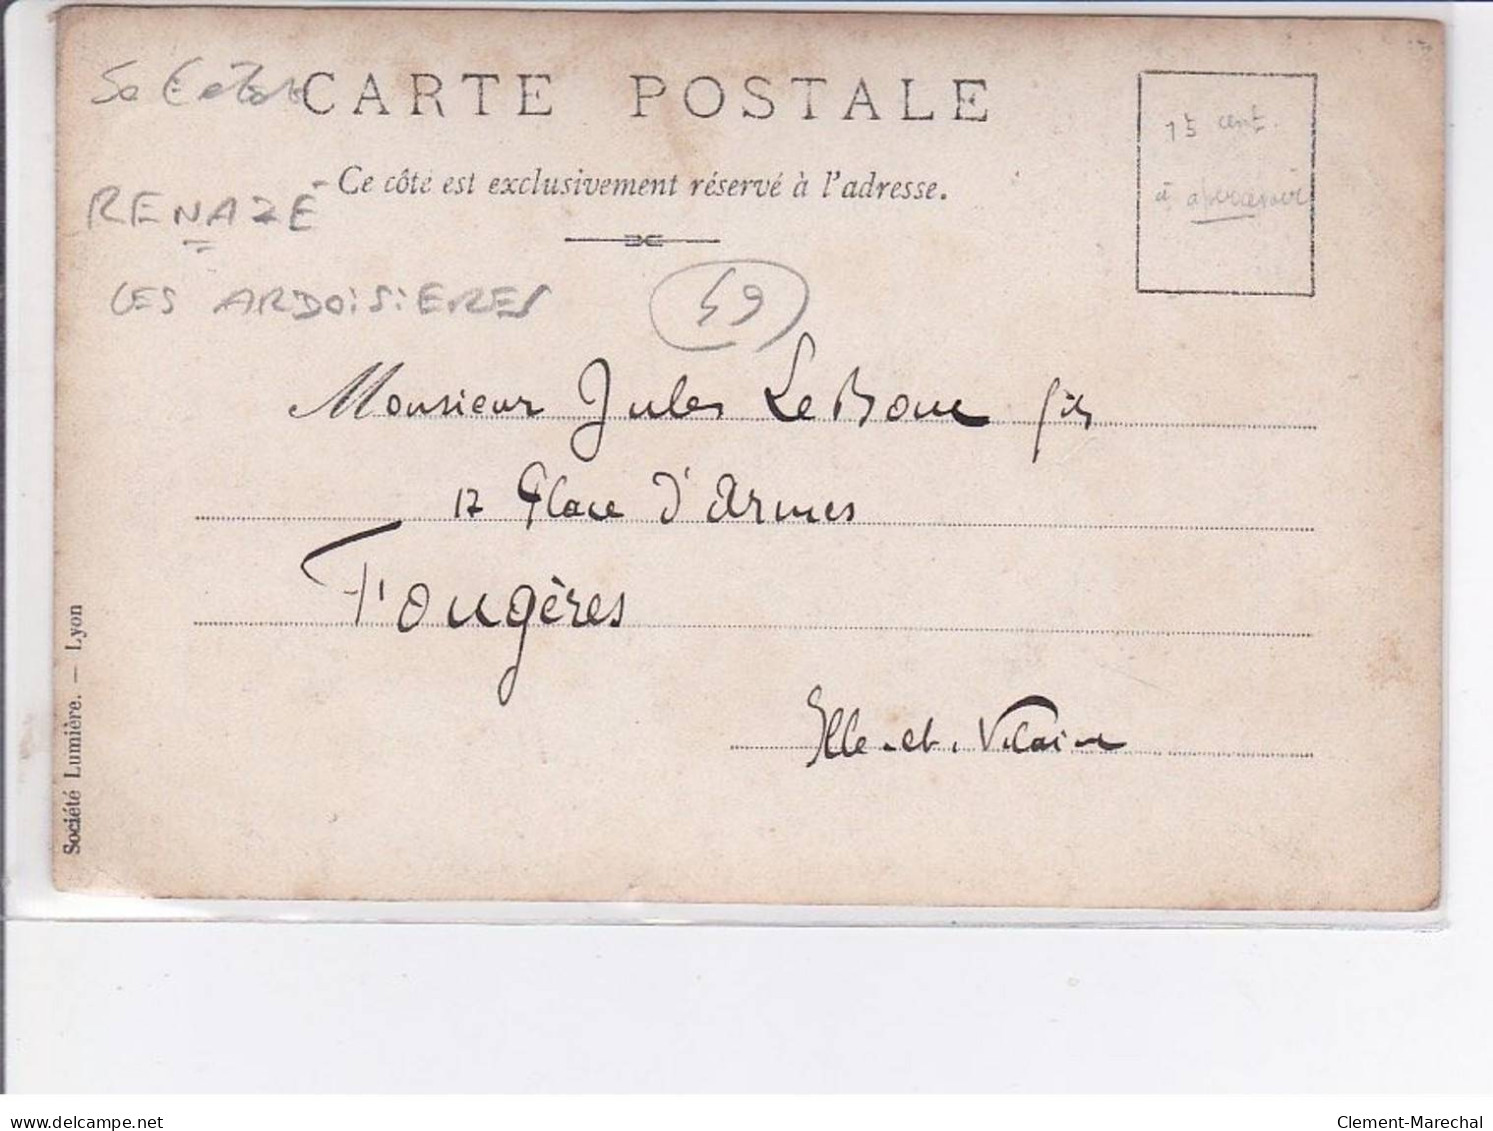 CARTE POSTALE
Ce côté est exclusivement réservé à l'adresse.
15 cent.
à apercevoir
RENAZÉ
LES ARDOISIERES
49
Monsieur Jules LeBouc fils
17 Place d'Armes
Fougères
Ille-et-Vilaine
Société Lumière. — Lyon
delcampe.net
Clement-Marechal